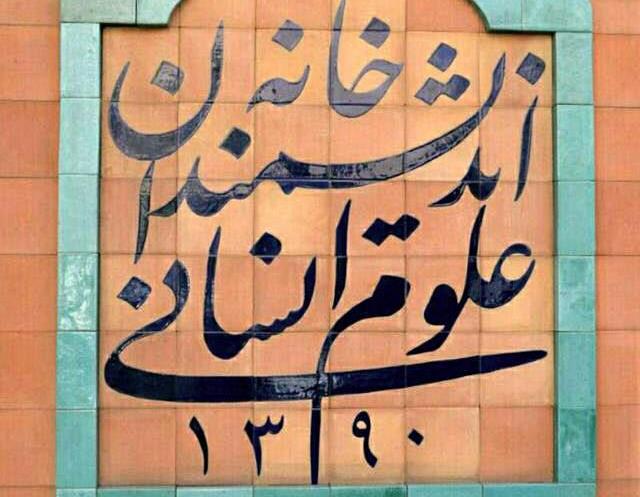 خانه
اندیشمندان
علوم انسانی
۱۳۹۰